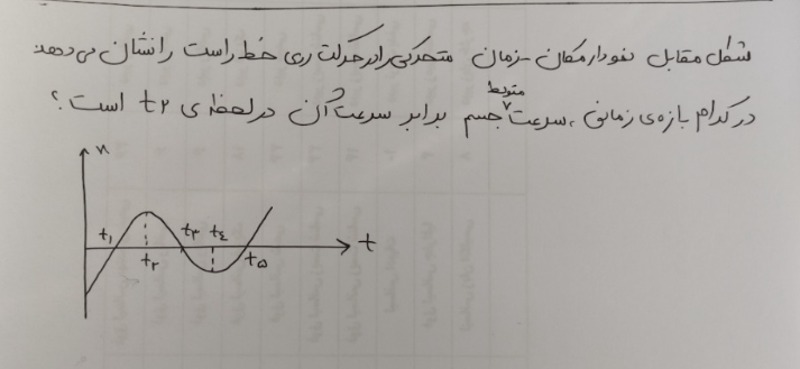 شکل مقابل نمودار مکان-زمان متحرکی را در حرکت روی خط راست را نشان می دهد
در کدام بازه ی زمانی، سرعت متوسط جسم برابر سرعت آن در لحظه ی t۲ است؟
x
t۱ t۳ t۴ t
t۲ t۵